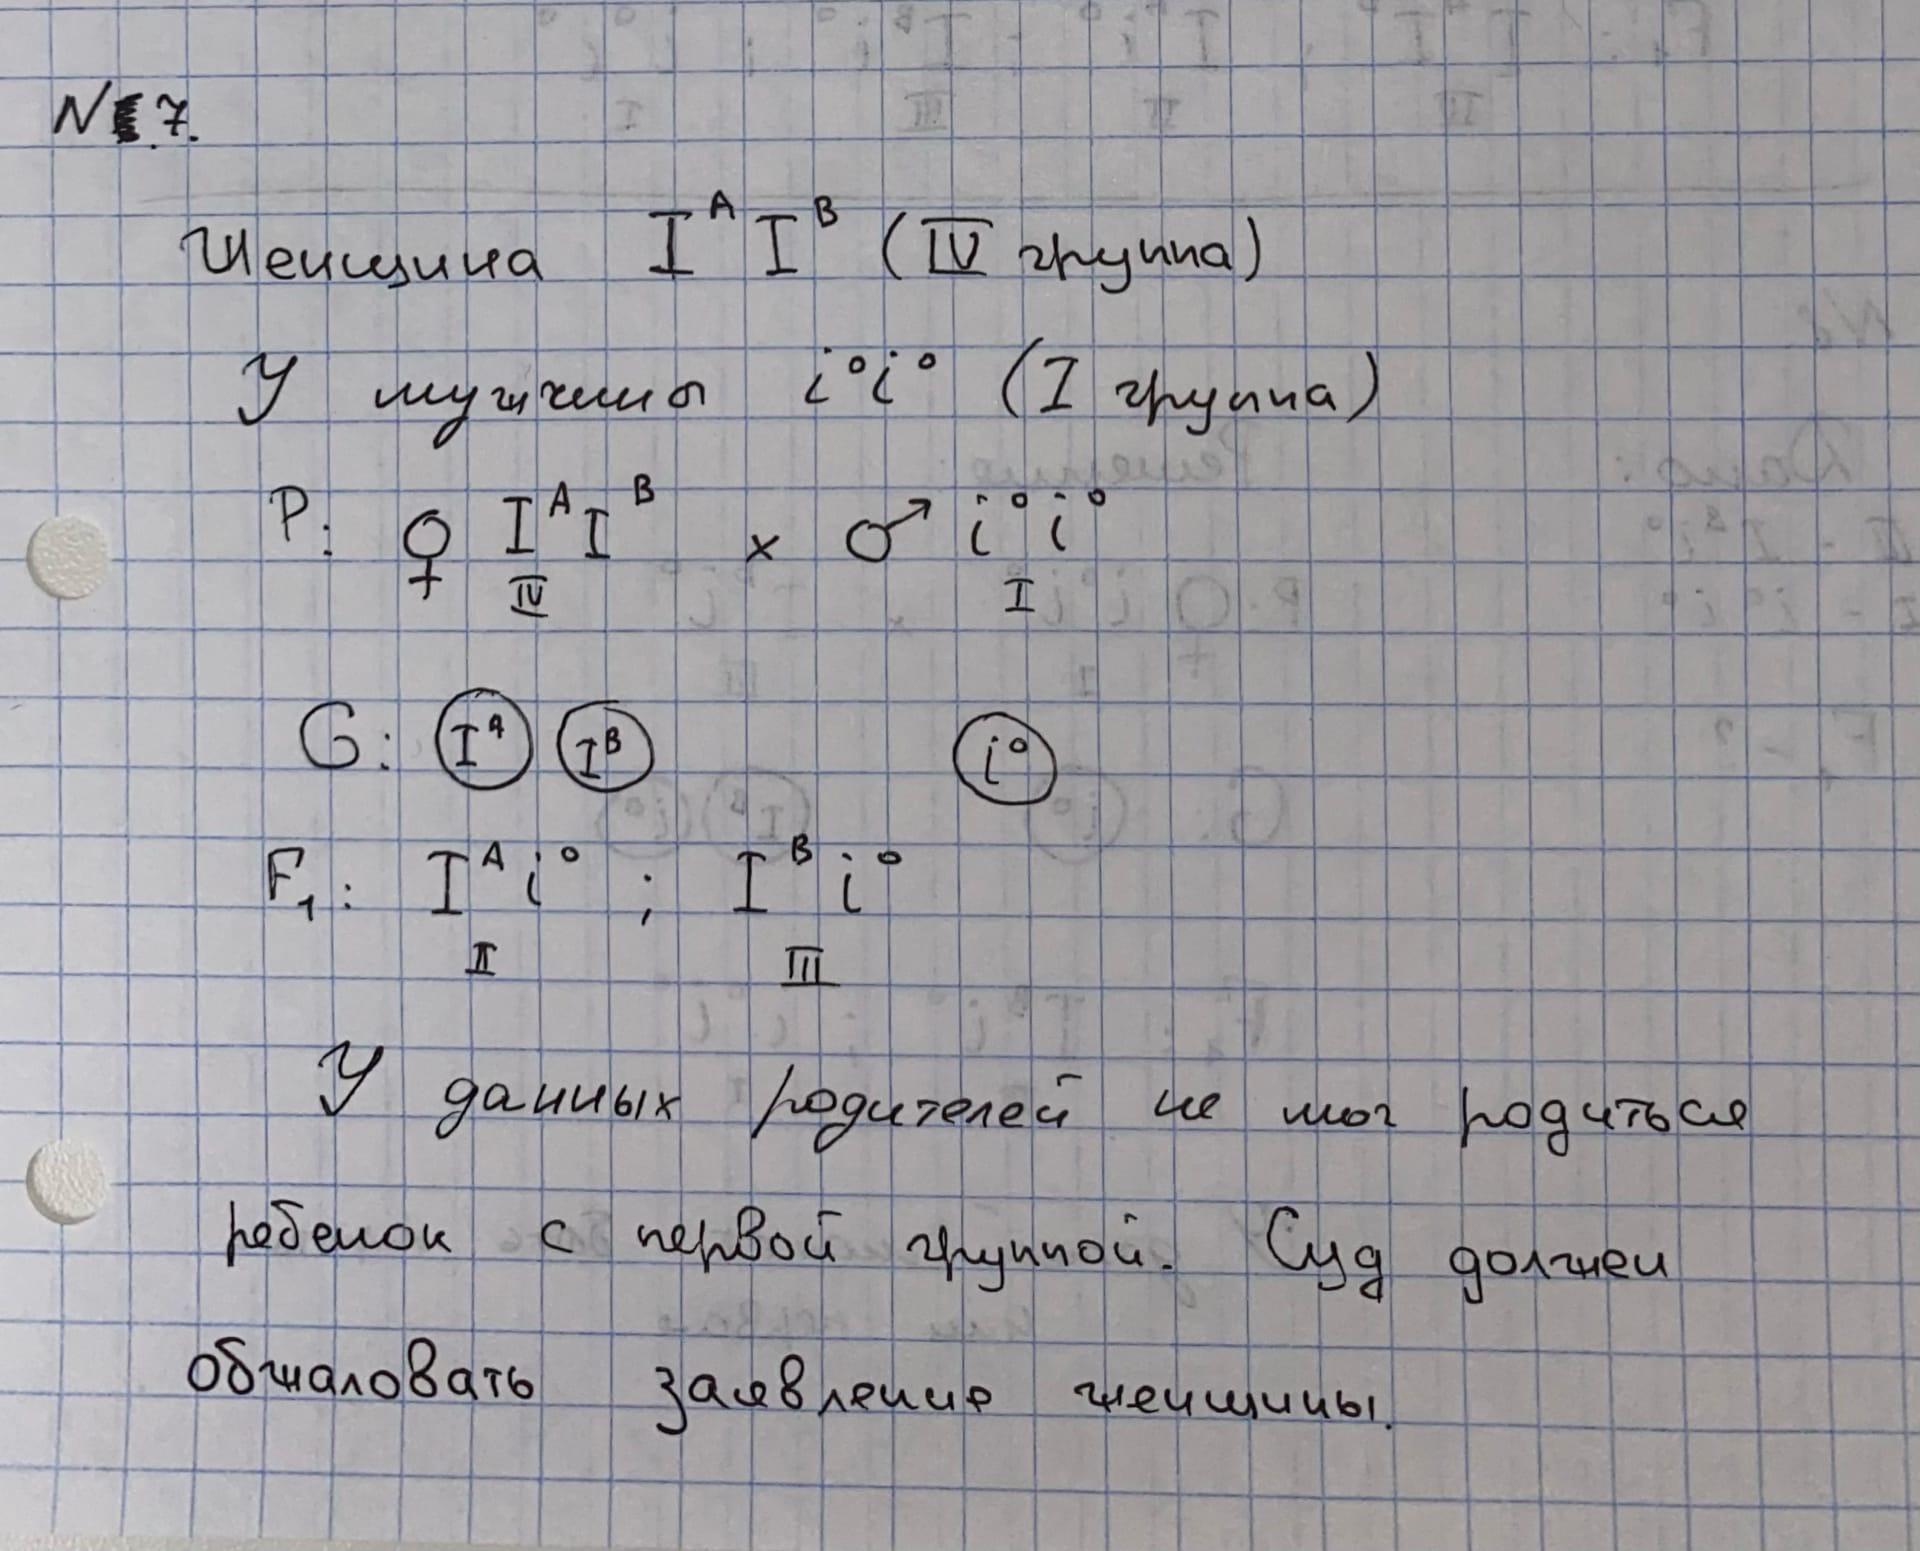 N 7.
Женщина I^A I^B (IV группа)
У мужчины i^o i^o (I группа)
P: ♀ I^A I^B x ♂ i^o i^o
IV I
G: I^A I^B i^o
F₁: I^A i^o ; I^B i^o
II III
У данных родителей не мог родиться
ребенок с первой группой. Суд должен
обжаловать заявление женщины.